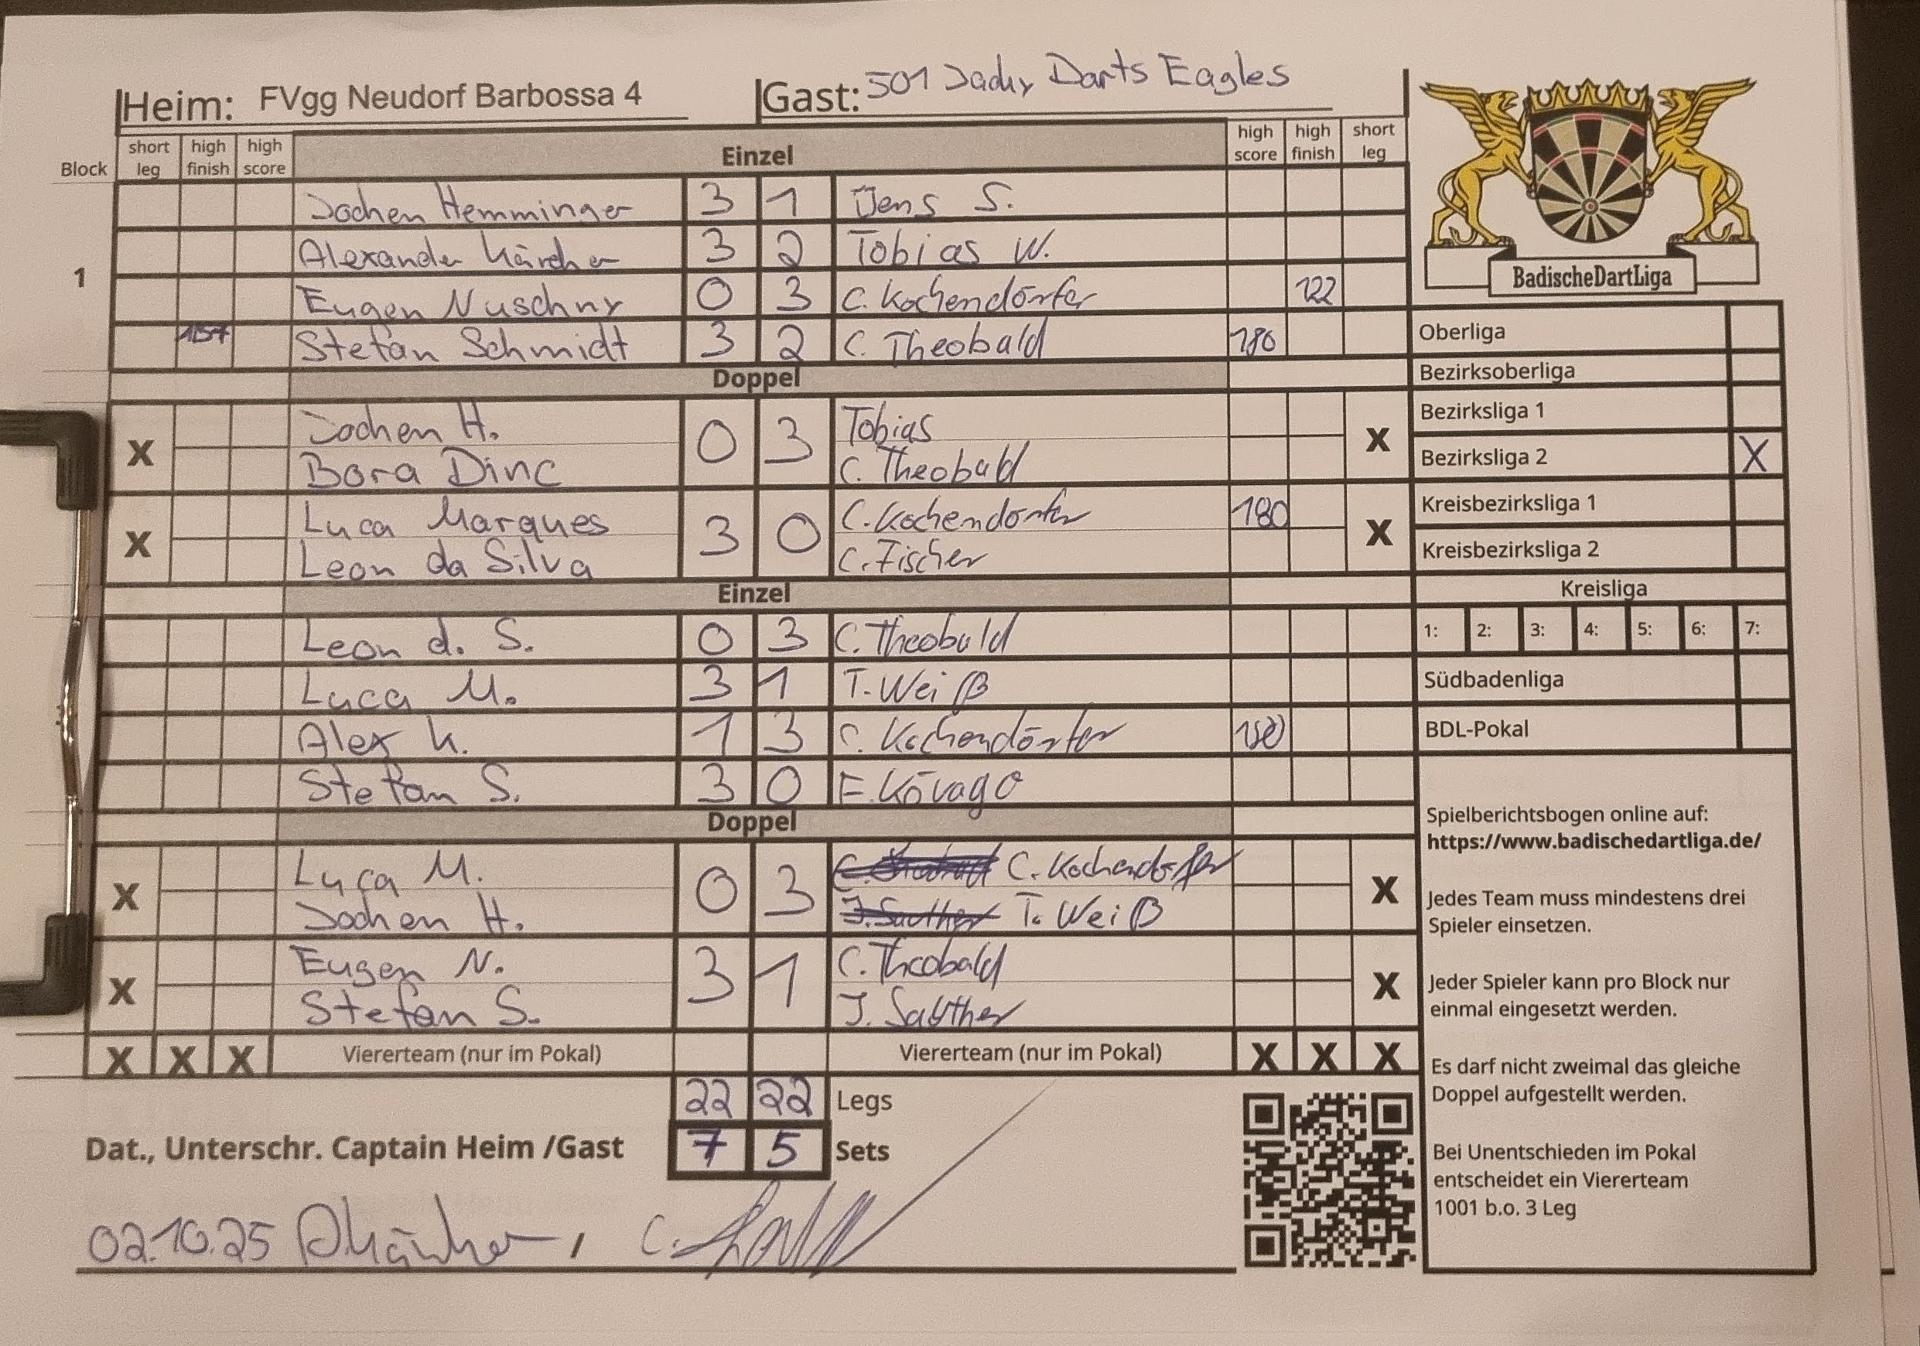 Heim: FVgg Neudorf Barbossa 4 Gast: 501 Darts Eagles
Block short leg high finish high score Einzel high score high finish short leg
1
Jochen Hemminger 3 1 Jens S.
Alexander Kärcher 3 2 Tobias W.
Eugen Nuschny 0 3 C. Kochendörfer 122
157 Stefan Schmidt 3 2 C. Theobald 180
Doppel
X Jochen H. 0 3 Tobias X
Bora Dinc C. Theobald
X Luca Marques 3 0 C. Kochendörfer 180 X
Leon da Silva C. Fischer
Einzel
Leon d. S. 0 3 C. Theobald
Luca M. 3 1 T. Weiß
Alex K. 1 3 C. Kochendörfer 180
Stefan S. 3 0 F. Kövago
Doppel
X Luca M. 0 3 C. Kochendörfer X
Jochen H. J. Sauther T. Weiß
X Eugen N. 3 1 C. Theobald X
Stefan S. J. Sauther
X X X Viererteam (nur im Pokal) Viererteam (nur im Pokal) X X X
22 22 Legs
Dat., Unterschr. Captain Heim /Gast 7 5 Sets
02.10.25 , C.
BadischeDartLiga
Oberliga
Bezirksoberliga
Bezirksliga 1
Bezirksliga 2 X
Kreisbezirksliga 1
Kreisbezirksliga 2
Kreisliga
1: 2: 3: 4: 5: 6: 7:
Südbadenliga
BDL-Pokal
Spielberichtsbogen online auf:
https://www.badischedartliga.de/
Jedes Team muss mindestens drei
Spieler einsetzen.
Jeder Spieler kann pro Block nur
einmal eingesetzt werden.
Es darf nicht zweimal das gleiche
Doppel aufgestellt werden.
Bei Unentschieden im Pokal
entscheidet ein Viererteam
1001 b.o. 3 Leg